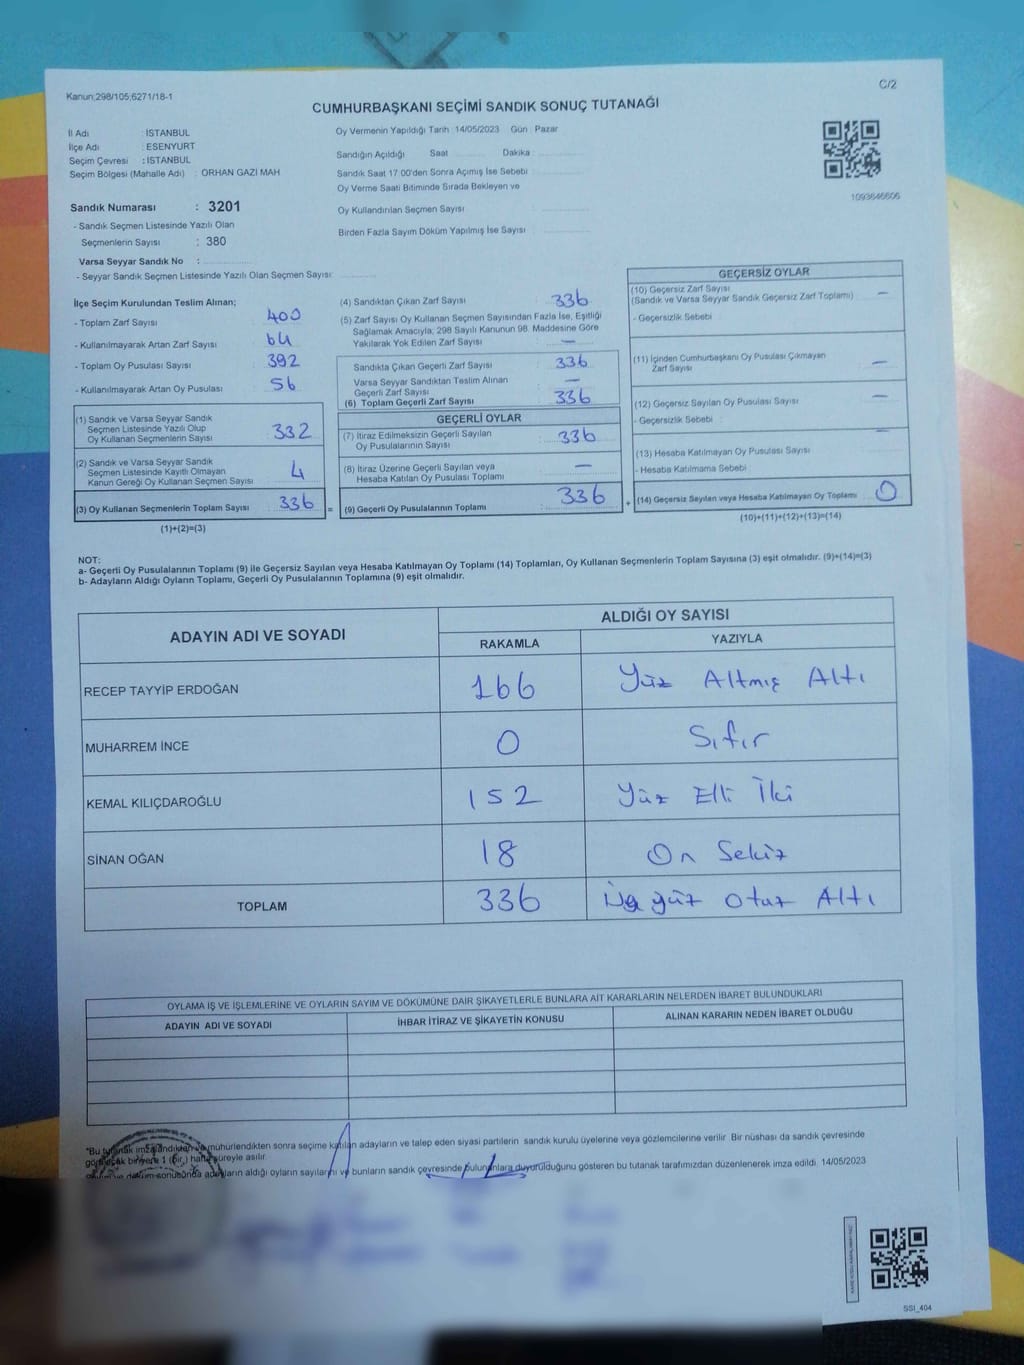 Kanun:298/105;6271/18-1
C/2
CUMHURBAŞKANI SEÇİMİ SANDIK SONUÇ TUTANAĞI
İl Adı : İSTANBUL
İlçe Adı : ESENYURT
Seçim Çevresi : İSTANBUL
Seçim Bölgesi (Mahalle Adı) : ORHAN GAZİ MAH
Sandık Numarası : 3201
- Sandık Seçmen Listesinde Yazılı Olan
Seçmenlerin Sayısı : 380
Varsa Seyyar Sandık No :
- Seyyar Sandık Seçmen Listesinde Yazılı Olan Seçmen Sayısı:
Oy Vermenin Yapıldığı Tarih 14/05/2023 Gün : Pazar
Sandığın Açıldığı Saat Dakika :
Sandık Saat 17.00'den Sonra Açımış İse Sebebi :
Oy Verme Saati Bitiminde Sırada Bekleyen ve
Oy Kullandırılan Seçmen Sayısı :
Birden Fazla Sayım Döküm Yapılmış İse Sayısı :
1093646606
İlçe Seçim Kurulundan Teslim Alınan;
- Toplam Zarf Sayısı : 400
- Kullanılmayarak Artan Zarf Sayısı : 64
- Toplam Oy Pusulası Sayısı : 392
- Kullanılmayarak Artan Oy Pusulası : 56
(1) Sandık ve Varsa Seyyar Sandık
Seçmen Listesinde Yazılı Olup
Oy Kullanan Seçmenlerin Sayısı : 332
(2) Sandık ve Varsa Seyyar Sandık
Seçmen Listesinde Kayıtlı Olmayan
Kanun Gereği Oy Kullanan Seçmen Sayısı : 4
(3) Oy Kullanan Seçmenlerin Toplam Sayısı : 336 =
(1)+(2)=(3)
(4) Sandıktan Çıkan Zarf Sayısı : 336
(5) Zarf Sayısı Oy Kullanan Seçmen Sayısından Fazla İse, Eşitliği
Sağlamak Amacıyla; 298 Sayılı Kanunun 98. Maddesine Göre
Yakılarak Yok Edilen Zarf Sayısı : —
Sandıkta Çıkan Geçerli Zarf Sayısı : 336
Varsa Seyyar Sandıktan Teslim Alınan
Geçerli Zarf Sayısı : —
(6) Toplam Geçerli Zarf Sayısı : 336
GEÇERLİ OYLAR
(7) İtiraz Edilmeksizin Geçerli Sayılan
Oy Pusulalarının Sayısı : 336
(8) İtiraz Üzerine Geçerli Sayılan veya
Hesaba Katılan Oy Pusulası Toplamı : —
(9) Geçerli Oy Pusulalarının Toplamı : 336 +
GEÇERSİZ OYLAR
(10) Geçersiz Zarf Sayısı
(Sandık ve Varsa Seyyar Sandık Geçersiz Zarf Toplamı) : —
- Geçersizlik Sebebi :
(11) İçinden Cumhurbaşkanı Oy Pusulası Çıkmayan
Zarf Sayısı : —
(12) Geçersiz Sayılan Oy Pusulası Sayısı : —
- Geçersizlik Sebebi :
(13) Hesaba Katılmayan Oy Pusulası Sayısı : —
- Hesaba Katılmama Sebebi :
(14) Geçersiz Sayılan veya Hesaba Katılmayan Oy Toplamı : 0
(10)+(11)+(12)+(13)=(14)
NOT:
a- Geçerli Oy Pusulalarının Toplamı (9) ile Geçersiz Sayılan veya Hesaba Katılmayan Oy Toplamı (14) Toplamları, Oy Kullanan Seçmenlerin Toplam Sayısına (3) eşit olmalıdır. (9)+(14)=(3)
b- Adayların Aldığı Oyların Toplamı, Geçerli Oy Pusulalarının Toplamına (9) eşit olmalıdır.
ADAYIN ADI VE SOYADI ALDIĞI OY SAYISI
RAKAMLA YAZIYLA
RECEP TAYYİP ERDOĞAN 166 Yüz Altmış Altı
MUHARREM İNCE 0 Sıfır
KEMAL KILIÇDAROĞLU 152 Yüz Elli İki
SİNAN OĞAN 18 On Sekiz
TOPLAM 336 Üç yüz Otuz Altı
OYLAMA İŞ VE İŞLEMLERİNE VE OYLARIN SAYIM VE DÖKÜMÜNE DAİR ŞİKAYETLERLE BUNLARA AİT KARARLARIN NELERDEN İBARET BULUNDUKLARI
ADAYIN ADI VE SOYADI İHBAR İTİRAZ VE ŞİKAYETİN KONUSU ALINAN KARARIN NEDEN İBARET OLDUĞU
*Bu tutanak imzalandıktan ve mühürlendikten sonra seçime katılan adayların ve talep eden siyasi partilerin sandık kurulu üyelerine veya gözlemcilerine verilir. Bir nüshası da sandık çevresinde
görülecek bir yere 1 (bir) hafta süreyle asılır.
döküm sonucunda adayların aldığı oyların sayılarını ve bunların sandık çevresinde bulunanlara duyurulduğunu gösteren bu tutanak tarafımızdan düzenlenerek imza edildi. 14/05/2023
SSI_404